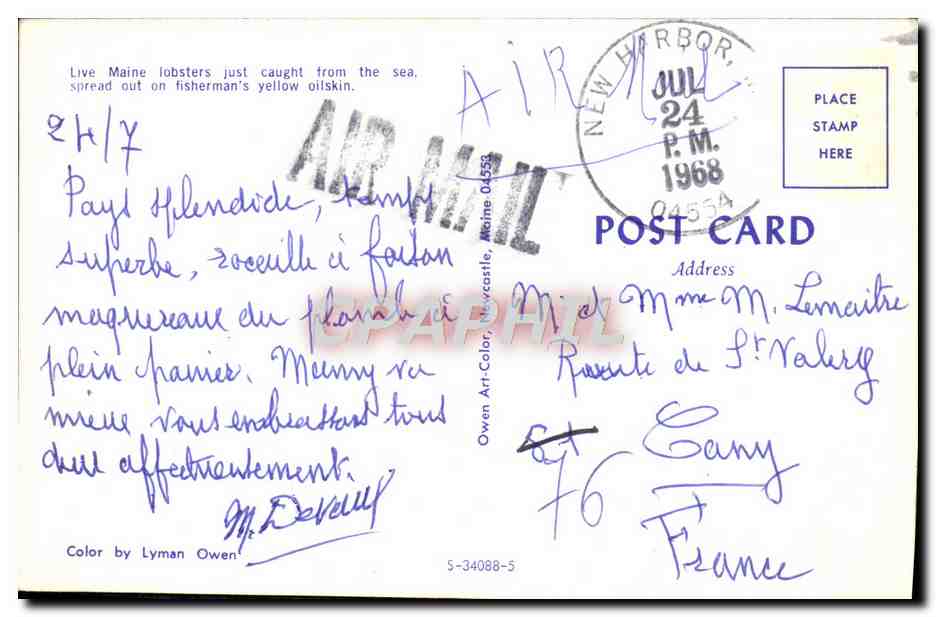 Live Maine lobsters just caught from the sea,
spread out on fisherman's yellow oilskin.
24/7
Pays splendide, temps
superbe, rocaille à foison
maquereaux du plomb à
plein panier. Manny va
mieux vous embrassons tous
deux affectueusement.
M. Devaux
Color by Lyman Owen
S-34088-5
Owen Art-Color, Newcastle, Maine 04553
AIR MAIL
AIR MAIL
NEW HARBOR,
JUL
24
P.M.
1968
04554
PLACE
STAMP
HERE
POST CARD
Address
M. et Mme M. Lemaitre
Route de St Valery
Cany
76
France
CPAPHIL